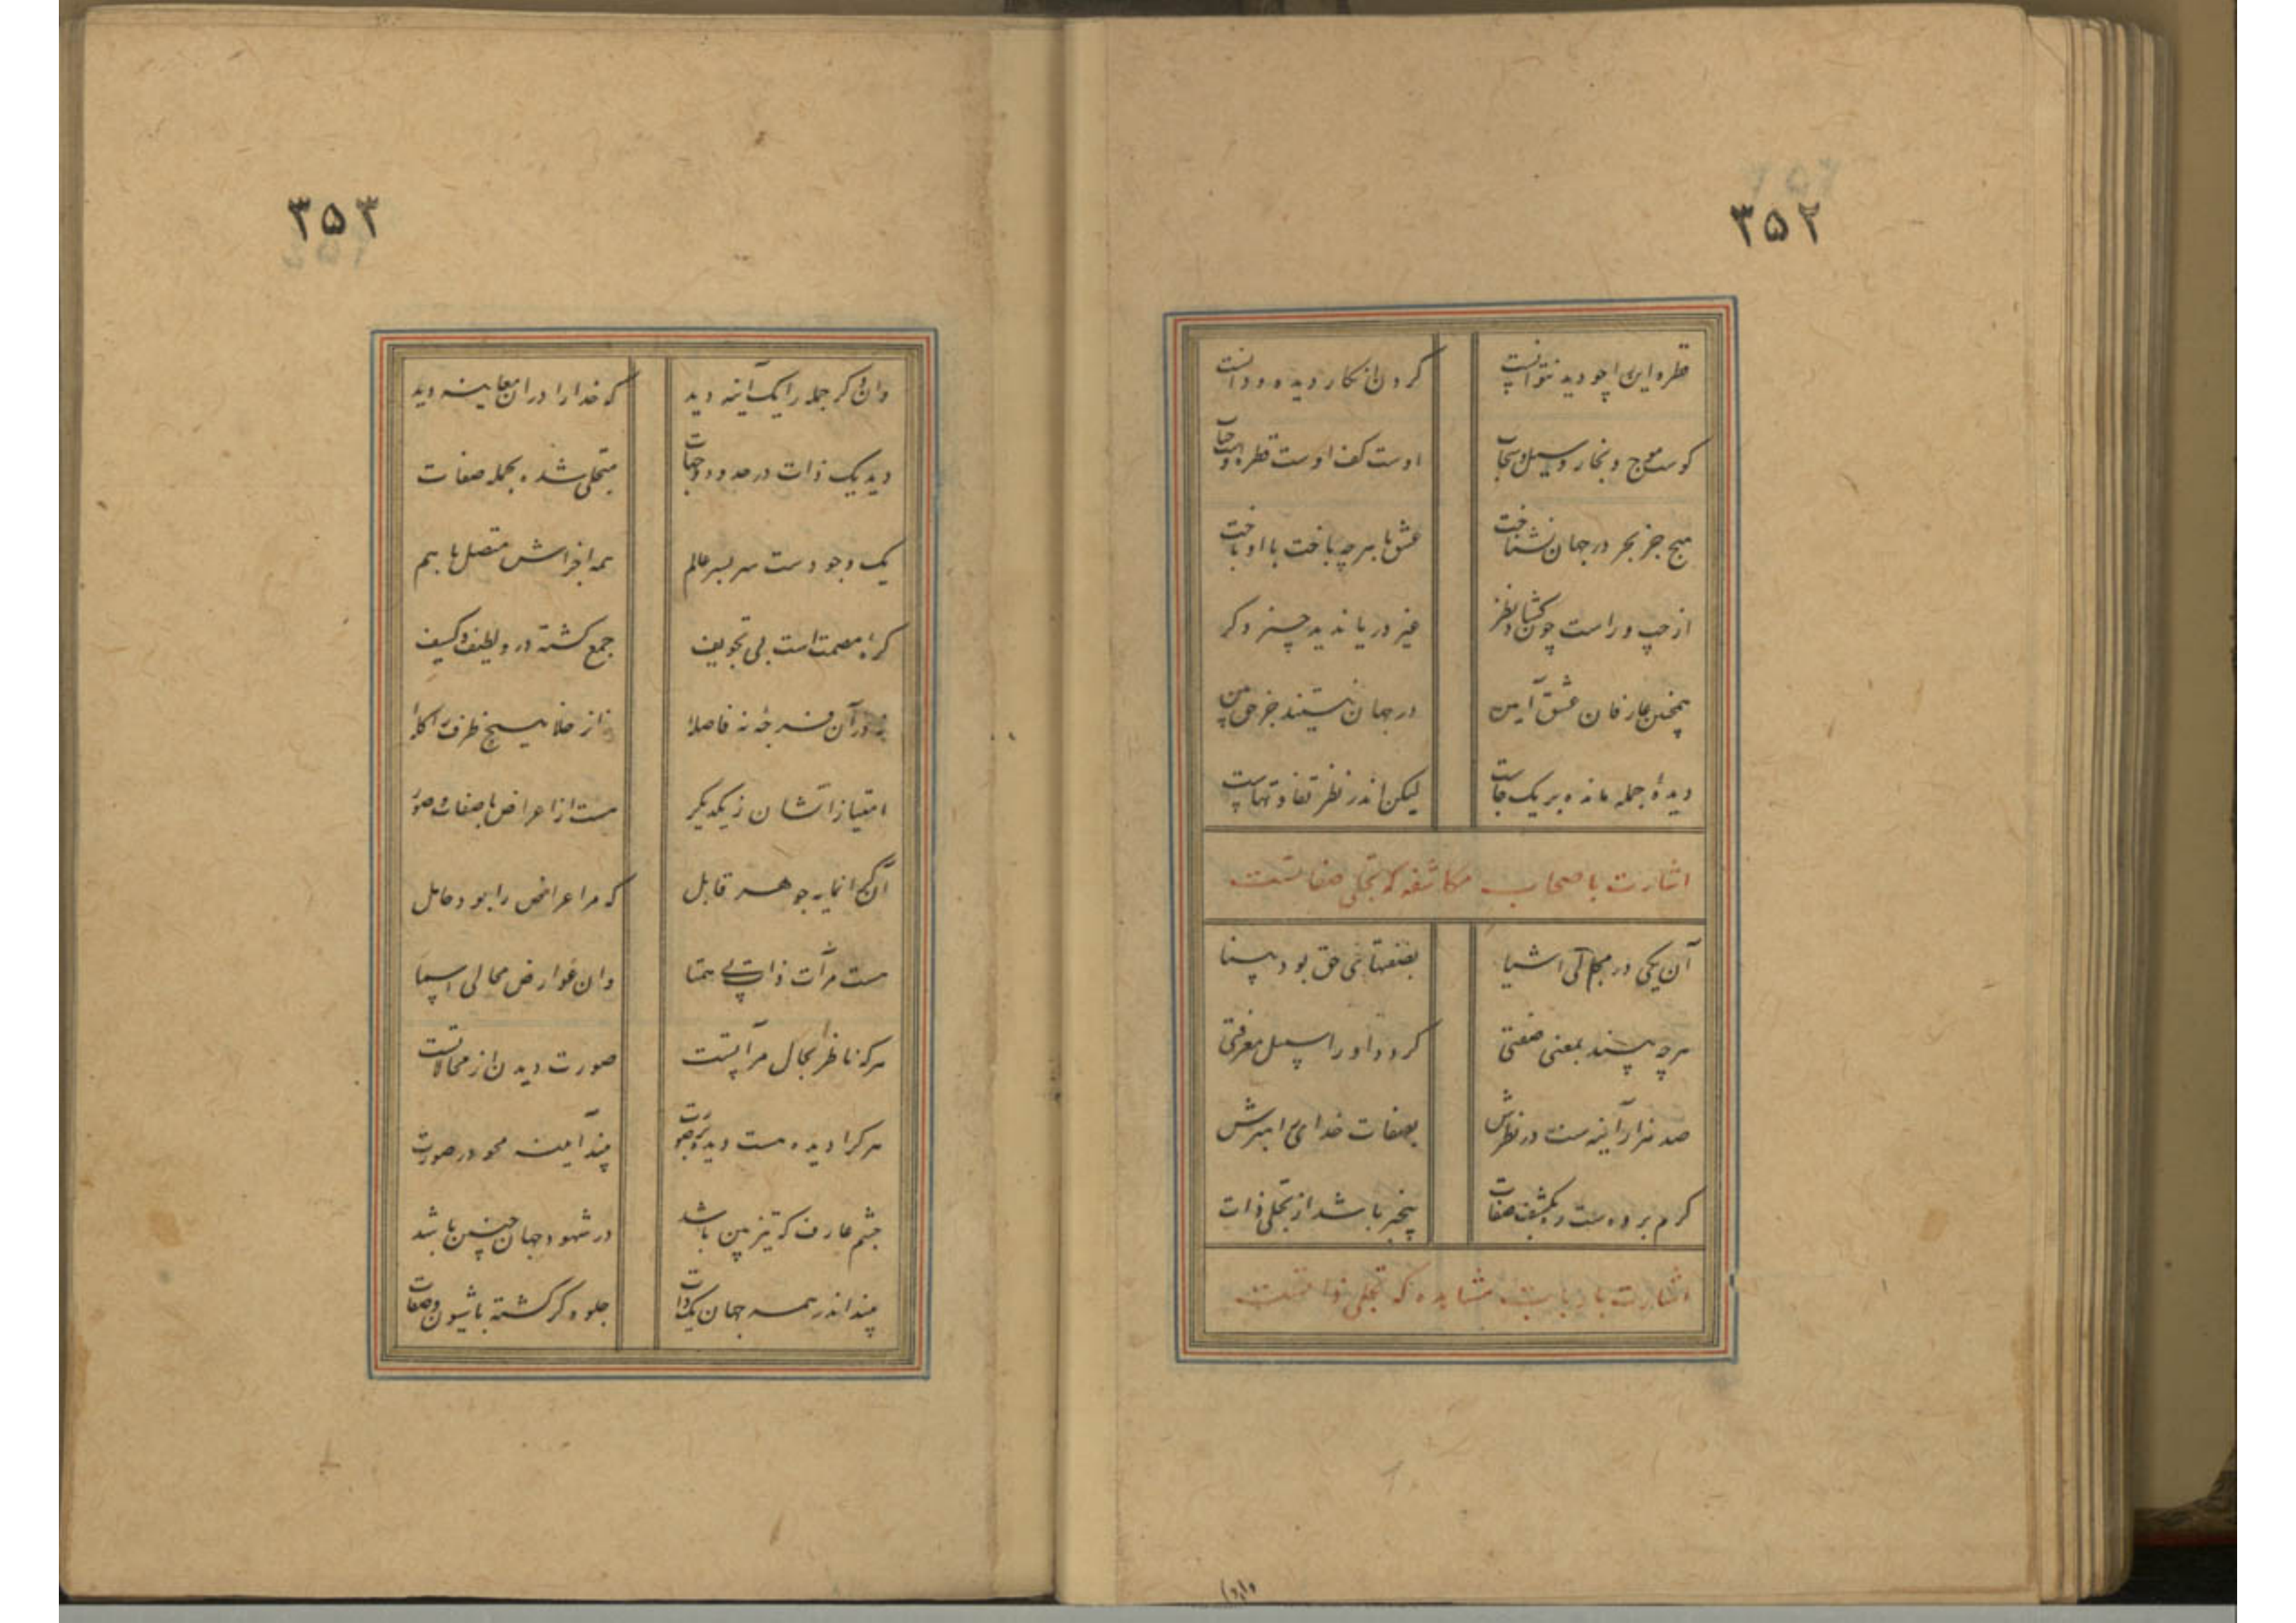 ۳۵۲
قطره این را چو دید نتوانست
کردن انکار دیده و دانست
کوست موج و بخار و سیل و سحاب
اوست کف اوست قطره اوست حباب
هیچ جز بحر در جهان نشناخت
عشق با هر چه باخت با او باخت
از چپ و راست چون گشاد نظر
غیر دریا ندید چیز دگر
همچنین عارفان عشق آیین
در جهان نیستند جز حق بین
دیدهٔ جمله مانده بر یک جاست
لیکن اندر نظر تفاوتهاست
اشارت با صحاب مکاشفه که تجلی صفاتست
آن یکی در مجالی اشیا
بصفتهای حق بود بینا
هر چه بیند بمعنی صفتی
گردد او را سبیل معرفتی
صد هزار آینه ست در نظرش
بصفات خدای راهبرش
گرم بر وی ست ره بکشف صفات
بیخبر باشد از تجلی ذات
اشارت بارباب مشاهده که تجلی ذاتست
۳۵۳
وان دگر جمله را یک آینه دید
که خدا را در ان معاینه دید
دید یک ذات در حدود و جهات
متجلی شده بجمله صفات
یک وجودست سر بسر عالم
همه اجزاش متصل با هم
کرهٔ مصمت است بی تجویف
جمع گشته درو لطیف و کثیف
نه در آن فرجهٔ نه فاصلهٔ
نه از خلا هیچ ظرف را گلهٔ
امتیازاتشان ز یکدیگر
هست از اعراض با صفات و صور
آن گرانمایه جوهر قابل
که مر اعراض را بود حامل
هست مرآت ذات بی همتا
وان عوارض مجالی اسما
هر که ناظر بجمال مرآتست
صورت دیدن از محالاتست
هر کرا دیده هست دیده صورت
بیند آیینه محو در صورت
چشم عارف که تیزبین باشد
در شهود جهان چنین باشد
بیند اندر همه جهان یک ذات
جلوه گر گشته با شیون و صفات